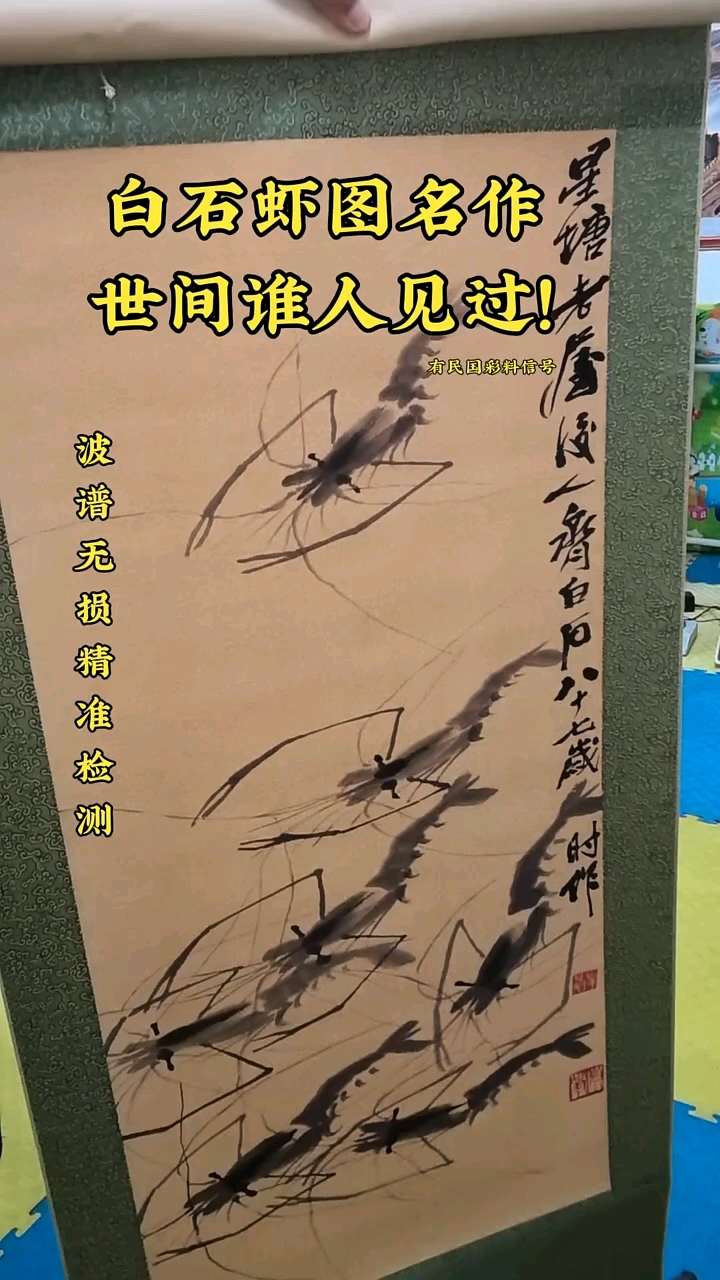 白石虾图名作
世间谁人见过!
有民国彩料信号
波谱无损精准检测
星塘老屋后人齐白石八十七岁
时作